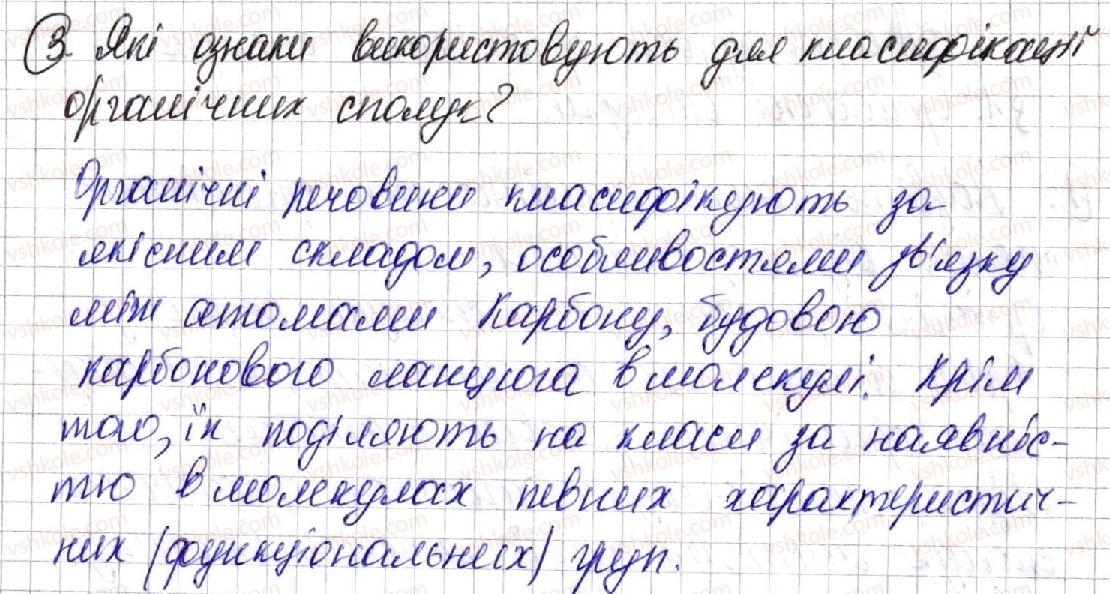 3. Які ознаки використовують для класифікації
органічних сполук?
Органічні речовини класифікують за
якісним складом, особливостями зв'язку
між атомами Карбону, будовою
карбонового ланцюга в молекулі. Крім
того, їх поділяють на класи за наявніс-
тю в молекулах певних характеристич-
них (функціональних) груп.